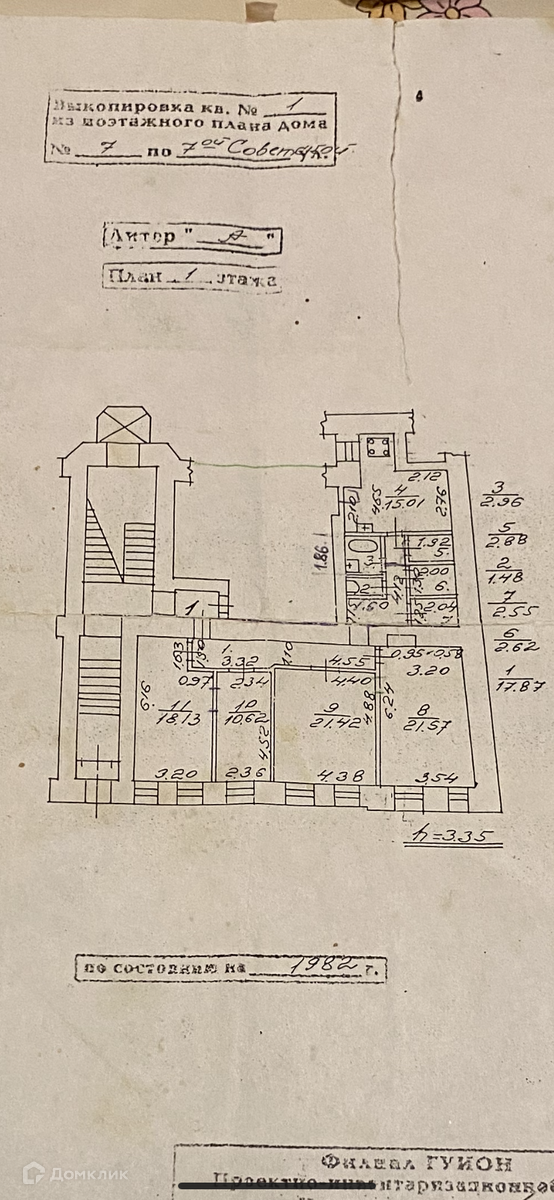 Выкопировка кв. № 1
из поэтажного плана дома
№ 7 по 7ой Советской ул.
Литер " А "
План 1 этажа
3
2.96
5
2.88
2
1.48
7
2.55
6
2.62
1
17.87
2.12
4
15.01
4.65
2.76
2.10
1.86
3.
1.92
5.
2.00
6.
2.
4.12
1.60
2.04
7
1
1.
3.32
1.10
4.55
0.95×0.58
0.97
2.34
4.40
3.20
6.16
11
18.13
10
10.62
4.52
9
21.42
4.88
6.24
8
21.57
3.20
2.36
4.38
3.54
h=3.35
по состоянию на 1982 г.
Филиал ГУИОН
Проектно-инвентаризационное
Домклик